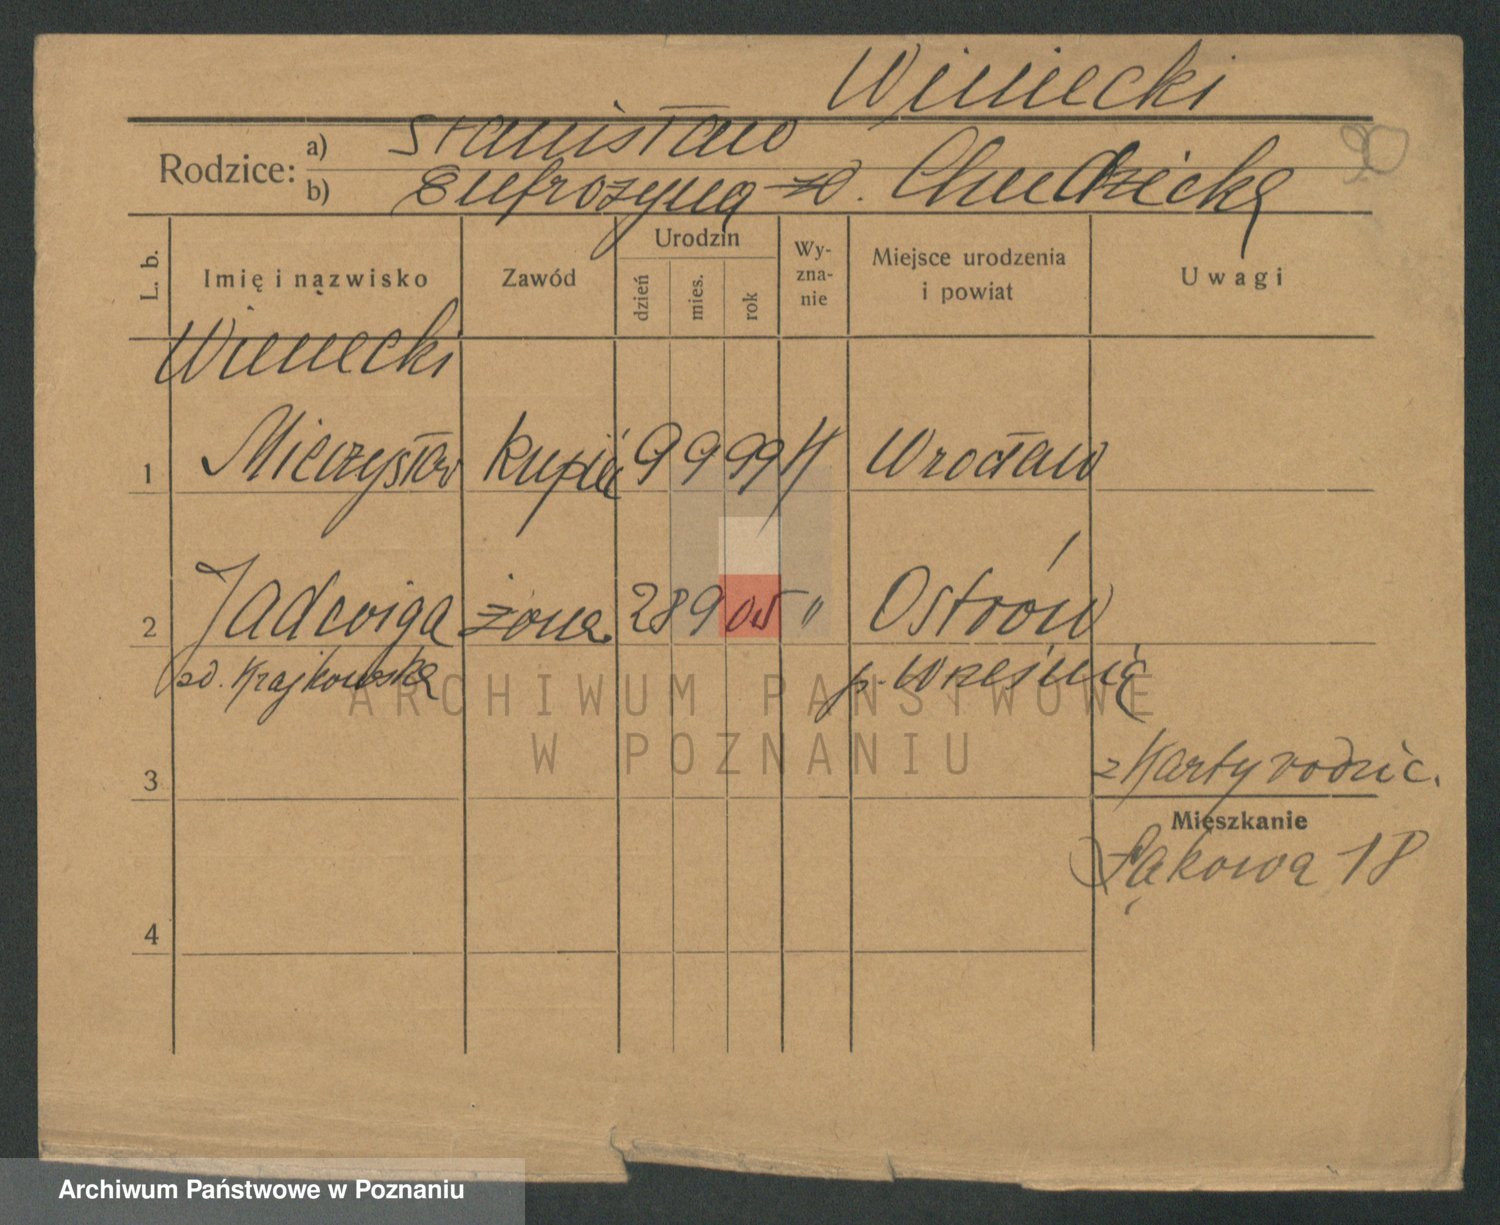 Winiecki
Rodzice: a) Stanisław
b) Eufrozyna zd. Chudzicka
L. b. Imię i nazwisko Zawód Urodzin dzień mies. rok Wy-zna-nie Miejsce urodzenia i powiat Uwagi
Winiecki
1 Mieczysław kupiec 9 9 99 Wrocław
2 Jadwiga żona 28 9 05 " Ostrów
zd. Krajkowska p. Września
3 z Karty rodzic.
Mieszkanie
Łąkowa 18
4
ARCHIWUM PAŃSTWOWE
W POZNANIU
Archiwum Państwowe w Poznaniu